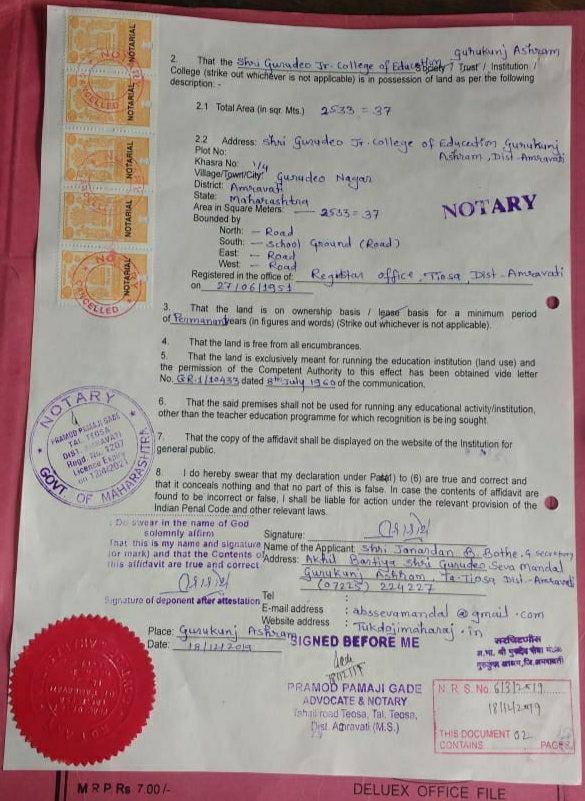 NOTARIAL
NOTARIAL
NOTARIAL
NOTARIAL
NOTARIAL
CANCELLED
CANCELLED
Gurukunj Ashram
2. That the Shri Gurudeo Jr. College of Education Society / Trust / Institution /
College (strike out whichever is not applicable) is in possession of land as per the following
description: -
2.1 Total Area (in sqr. Mts.) 2533=37
2.2 Address: Shri Gurudeo Jr. College of Education, Gurukunj
Ashram, Dist-Amravati
Plot No:
Khasra No: 1/4
Village/Town/City: Gurudeo Nagar
District: Amravati
State: Maharashtra
Area in Square Meters: — 2533=37
NOTARY
Bounded by
North: — Road
South: — School Ground (Road)
East: — Road
West: — Road
Registered in the office of: Registar office, Tiosa, Dist-Amravati
on 27/06/1951
3. That the land is on ownership basis / lease basis for a minimum period
of Permanant years (in figures and words) (Strike out whichever is not applicable).
4. That the land is free from all encumbrances.
5. That the land is exclusively meant for running the education institution (land use) and
the permission of the Competent Authority to this effect has been obtained vide letter
No. GR.1/10433 dated 8th July 1960 of the communication.
6. That the said premises shall not be used for running any educational activity/institution,
other than the teacher education programme for which recognition is being sought.
7. That the copy of the affidavit shall be displayed on the website of the Institution for
general public.
8. I do hereby swear that my declaration under Para(1) to (6) are true and correct and
that it conceals nothing and that no part of this is false. In case the contents of affidavit are
found to be incorrect or false, I shall be liable for action under the relevant provision of the
Indian Penal Code and other relevant laws.
NOTARY
PRAMOD PAMAJI GADE
TAL. TEOSA
DIST. AMRAVATI
Regd. No. 1207
Licence Expiry
on 12/04/2021
GOVT OF MAHARASHTRA
I Do swear in the name of God
solemnly affirm
That this is my name and signature
(or mark) and that the Contents of
this affidavit are true and correct
Signature of deponent after attestation
Signature:
Name of the Applicant: Shri Janardan B. Bothe, G. secretary
Address: Akhil Bartiya Shri Gurudeo Seva Mandal
Gurukunj Ashram, Ta-Tiosa Dist-Amravati
(07225) 224227
Tel :
E-mail address : abssevamandal@gmail.com
Website address : Tukdojimaharaj.in
Place: Gurukunj Ashram
Date: 18/12/2019
SIGNED BEFORE ME
PRAMOD PAMAJI GADE
ADVOCATE & NOTARY
Tahsil road Teosa, Tal. Teosa,
Dist. Amravati (M.S.)
सरचिटणीस
अ.भा. श्री गुरुदेव सेवा मंडळ
गुरुकुंज आश्रम, जि.अमरावती
N. R. S. No. 613/2019
18/12/2019
THIS DOCUMENT 02
CONTAINS PAGES
M R P Rs 7.00/-
DELUEX OFFICE FILE